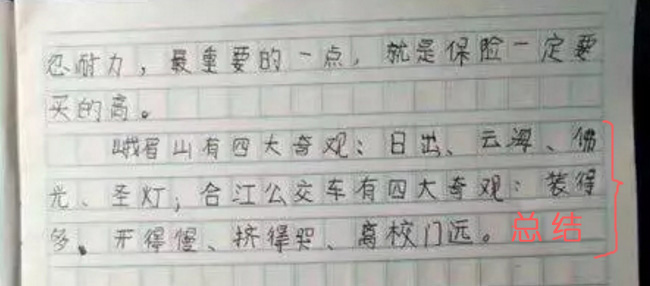 忍耐力，最重要的一点，就是保险一定要
买的高。
峨眉山有四大奇观：日出、云海、佛
光、圣灯；合江公交车有四大奇观：装得
多、开得慢、挤得哭、离校门远。总结